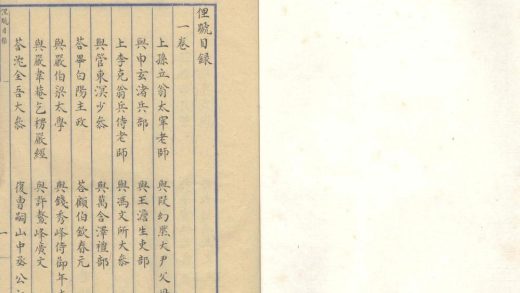 俚號目錄
一卷
上孫立翁太宰老師 與段幻然大尹父母
與申玄渚兵部 與王澹生吏部
上李克翁兵侍老師 與馮文所大參
與管東溟少參 與萬含澤禮部
答畢白陽主政 答顧伯欽春元
與嚴伯梁太學 與錢秀峰侍御年
與嚴韋菴乞楞嚴經 與許鰲峰廣文
答沈金吾大參 復曹嗣山中丞公
俚號目錄
一